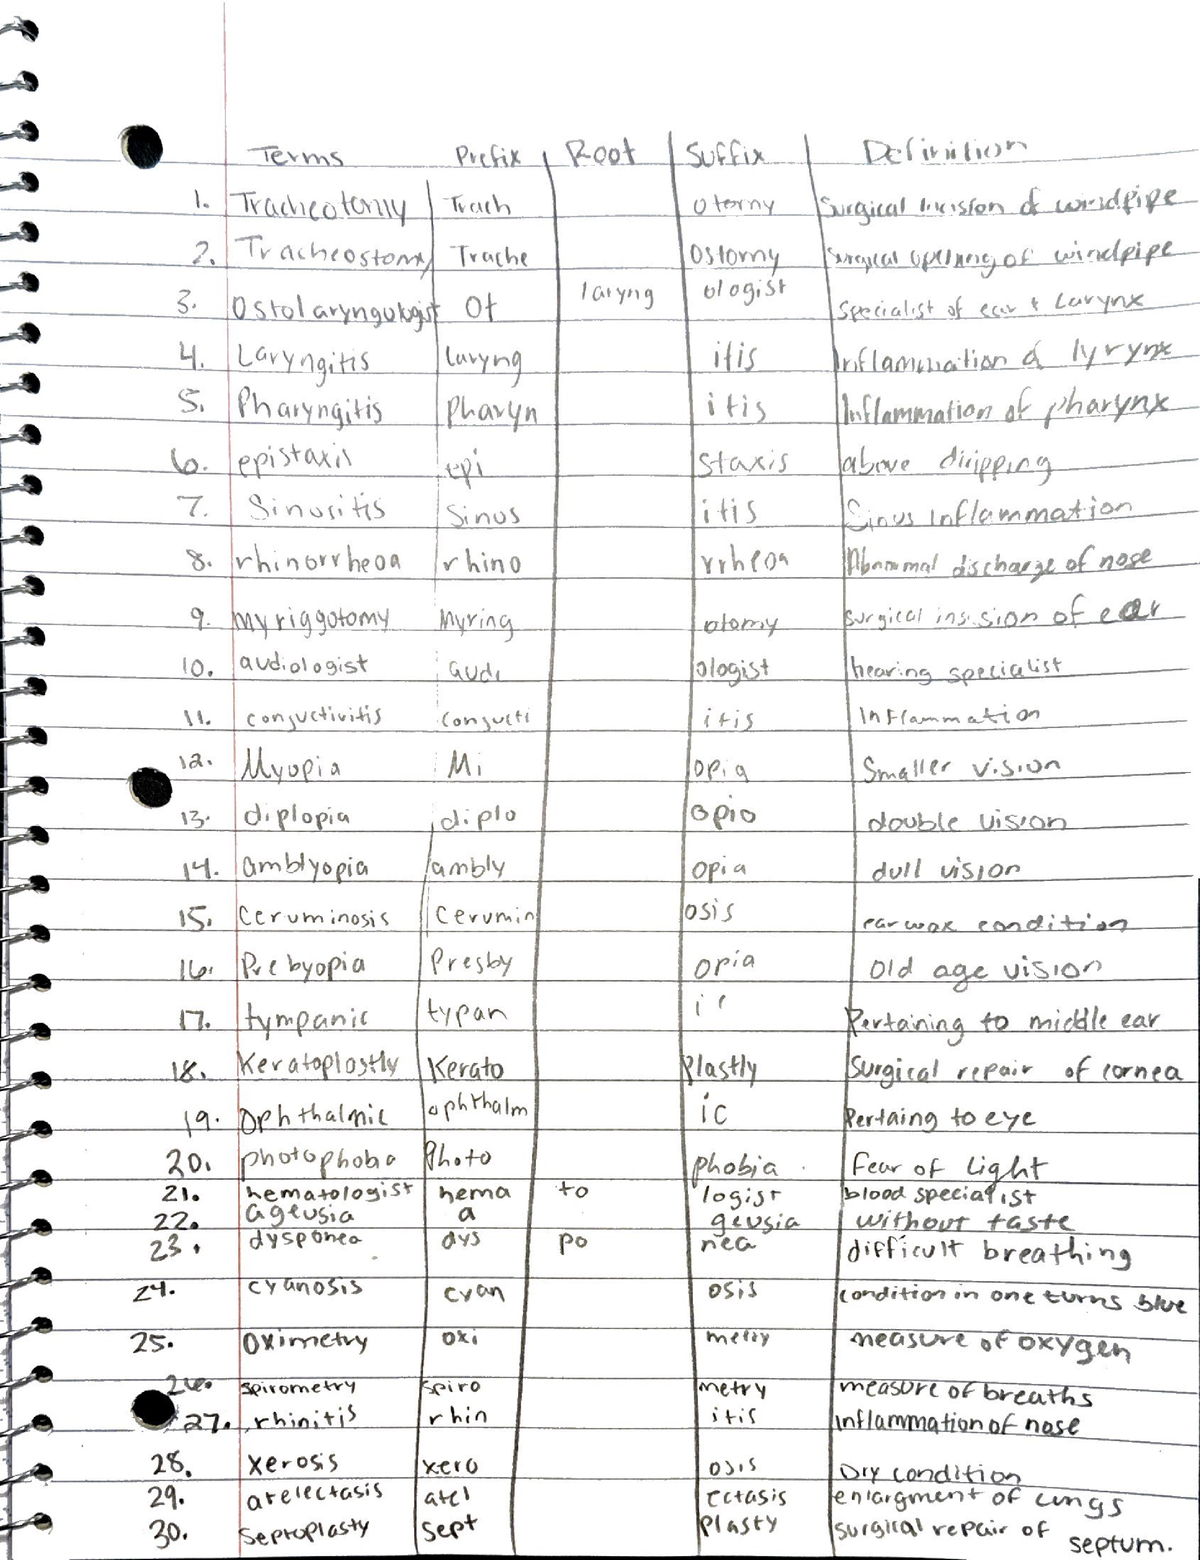 Terms Prefix Root Suffix Definition
1. Tracheotomy Trach otomy Surgical incision of windpipe
2. Tracheostomy Trache ostomy Surgical opening of windpipe
3. Ostolaryngologist Ot laryng ologist Specialist of ear + Larynx
4. Laryngitis laryng itis Inflammation of lyrynx
5. Pharyngitis pharyn itis Inflammation of pharynx
6. epistaxis epi staxis above dripping
7. Sinusitis Sinus itis Sinus inflammation
8. rhinorrheoa rhino rrheoa Abnormal discharge of nose
9. myriggotomy Myring otomy surgical insision of ear
10. audiologist audi ologist hearing specialist
11. conjuctivitis conjucti itis Inflammation
12. Myopia Mi opia Smaller vision
13. diplopia diplo opio double vision
14. amblyopia ambly opia dull vision
15. Ceruminosis Cerumin osis earwax condition
16. Prebyopia Presby opia Old age vision
17. tympanic typan ic Pertaining to middle ear
18. Keratoplastly Kerato Plastly Surgical repair of cornea
19. Ophthalmic ophthalm ic Pertaing to eye
20. photophobia Photo phobia Fear of Light
21. hematologist hema to logist blood specialist
22. ageusia a geusia without taste
23. dysponea dys po nea difficult breathing
24. cyanosis cyan osis condition in one turns blue
25. oximetry oxi metry measure of oxygen
26. spirometry spiro metry measure of breaths
27. rhinitis rhin itis inflammation of nose
28. xerosis xero osis Dry condition
29. atelectasis atel ectasis enlargment of lungs
30. septoplasty sept plasty surgical repair of septum.